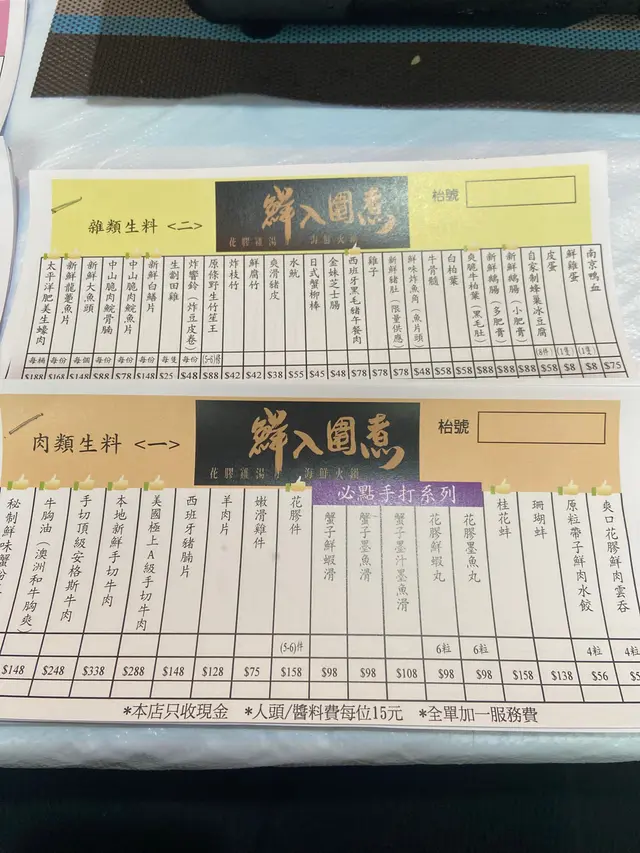 雜類生料 <二>
鮮入圍煮
花膠雞湯 海鮮火鍋
枱號
太平洋肥美生蠔肉
新鮮龍躉魚片
新鮮大魚頭
中山脆肉鯇骨腩
中山脆肉鯇魚片
新鮮白鱔片
生劏田雞
炸響鈴（炸豆皮卷）
原條野生竹笙王
炸枝竹
鮮腐竹
爽滑豬皮
水魷
日式蟹柳棒
金妹芝士腸
西班牙黑毛豬午餐肉
雞子
新鮮豬肚（限量供應）
鮮味炸魚角（魚片頭）
牛骨髓
白柏葉
爽脆牛柏葉（黑毛肚）
新鮮鵝腸（多肥膏）
新鮮鵝腸（小肥膏）
自家制蜂巢冰豆腐
皮蛋
鮮雞蛋
南京鴨血
每桶 每份 每個 每份 每份 每份 每隻 每份 (5-6)件 (8件) (1隻) (1隻)
$188 $168 $148 $88 $78 $148 $25 $48 $88 $42 $42 $38 $55 $45 $48 $78 $78 $78 $48 $58 $58 $88 $88 $88 $58 $8 $8 $75
肉類生料 <一>
鮮入圍煮
花膠雞湯 海鮮火鍋
枱號
必點手打系列
秘制鮮味蟹粉
牛胸油（澳洲和牛胸爽）
手切頂級安格斯牛肉
本地新鮮手切牛肉
美國極上A級手切牛肉
西班牙豬腩片
羊肉片
嫩滑雞件
花膠件
蟹子鮮蝦滑
蟹子墨魚滑
蟹子墨汁墨魚滑
花膠鮮蝦丸
花膠墨魚丸
桂花蚌
珊瑚蚌
原粒帶子鮮肉水餃
爽口花膠鮮肉雲吞
(5-6)件 6粒 6粒 4粒 4粒
$148 $248 $338 $288 $148 $128 $75 $158 $98 $98 $108 $98 $98 $158 $138 $56
*本店只收現金 *人頭/醬料費每位15元 *全單加一服務費